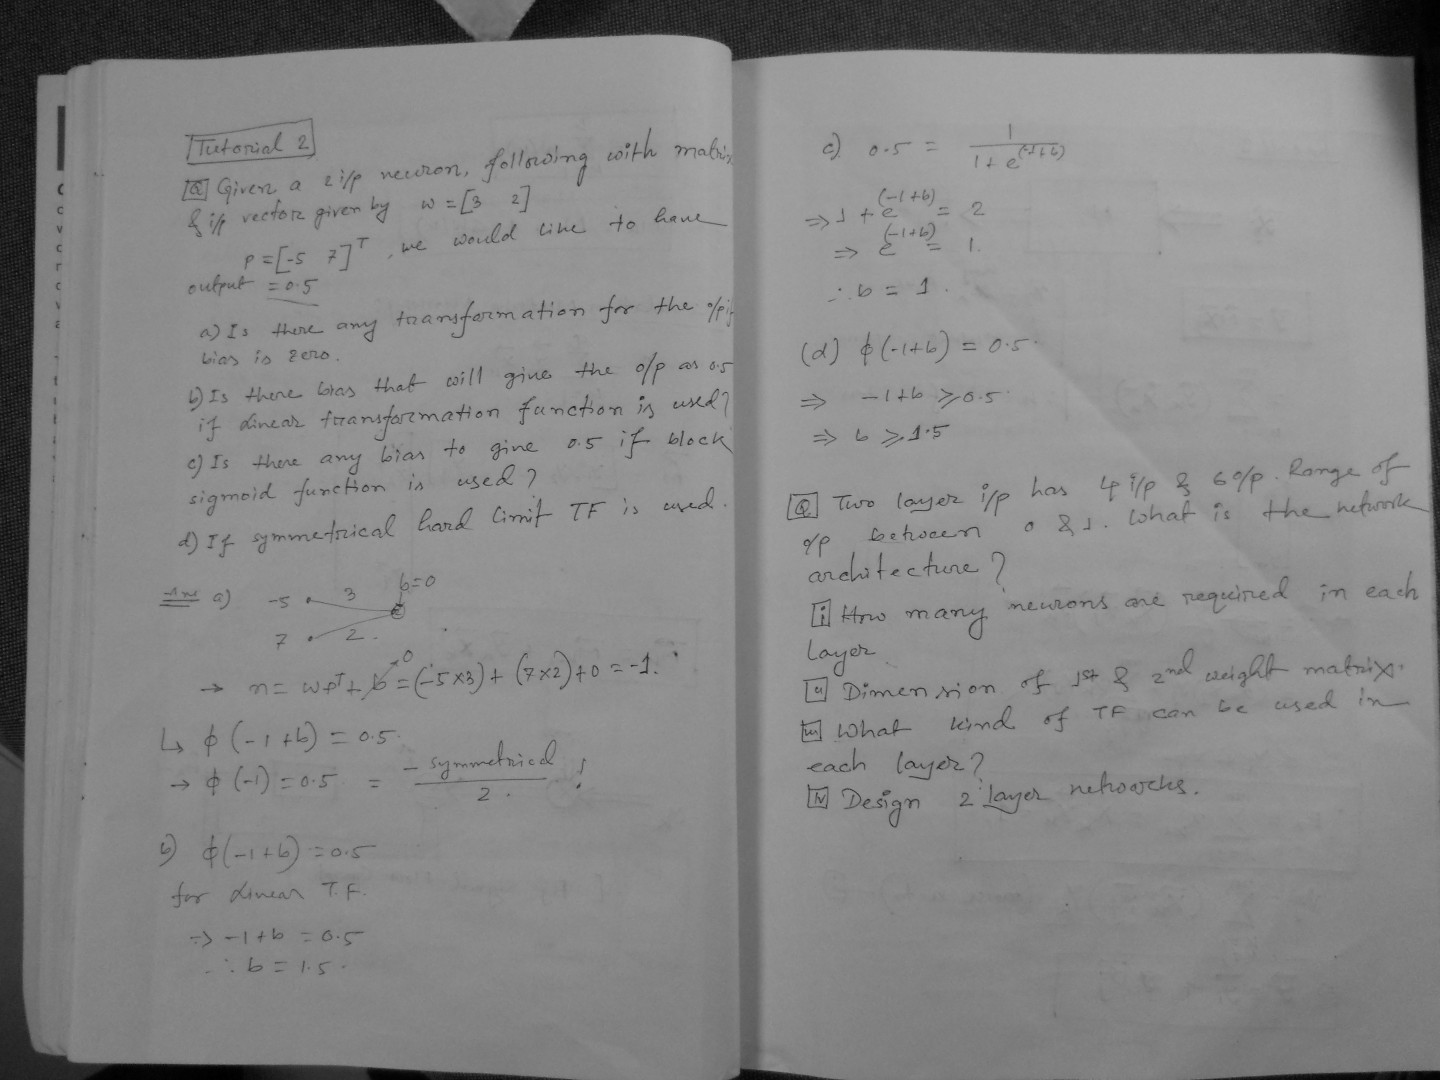 Tutorial 2
Q Given a 2 i/p neuron, following with matrix
& i/p vector given by w = [3 2]
p = [-5 7]ᵀ, we would like to have
output = 0.5
a) Is there any transformation for the o/p if
bias is zero.
b) Is there bias that will give the o/p as 0.5
if linear transformation function is used?
c) Is there any bias to give 0.5 if block
sigmoid function is used?
d) If symmetrical hard limit TF is used.
Ans a) -5 3 b=0
7 2.
→ n = wpᵀ + b⁰ = (-5×3) + (7×2) + 0 = -1.
↳ ϕ(-1+b) = 0.5.
→ ϕ(-1) = 0.5 = - symmetrical / 2. !
b) ϕ(-1+b) = 0.5
for Linear T.F.
⇒ -1+b = 0.5
∴ b = 1.5.
c) 0.5 = 1 / 1+e^(-1+b)
⇒ 1 + e^(-1+b) = 2
⇒ e^(-1+b) = 1.
∴ b = 1.
(d) ϕ(-1+b) = 0.5.
⇒ -1+b ⩾ 0.5
⇒ b ⩾ 1.5
Q Two layer i/p has 4 i/p & 6 o/p. Range of
o/p between 0 & 1. What is the network
architecture?
i How many neurons are required in each
layer.
ii Dimension of 1st & 2nd weight matrix.
iii What kind of TF can be used in
each layer?
iv Design 2 layer networks.